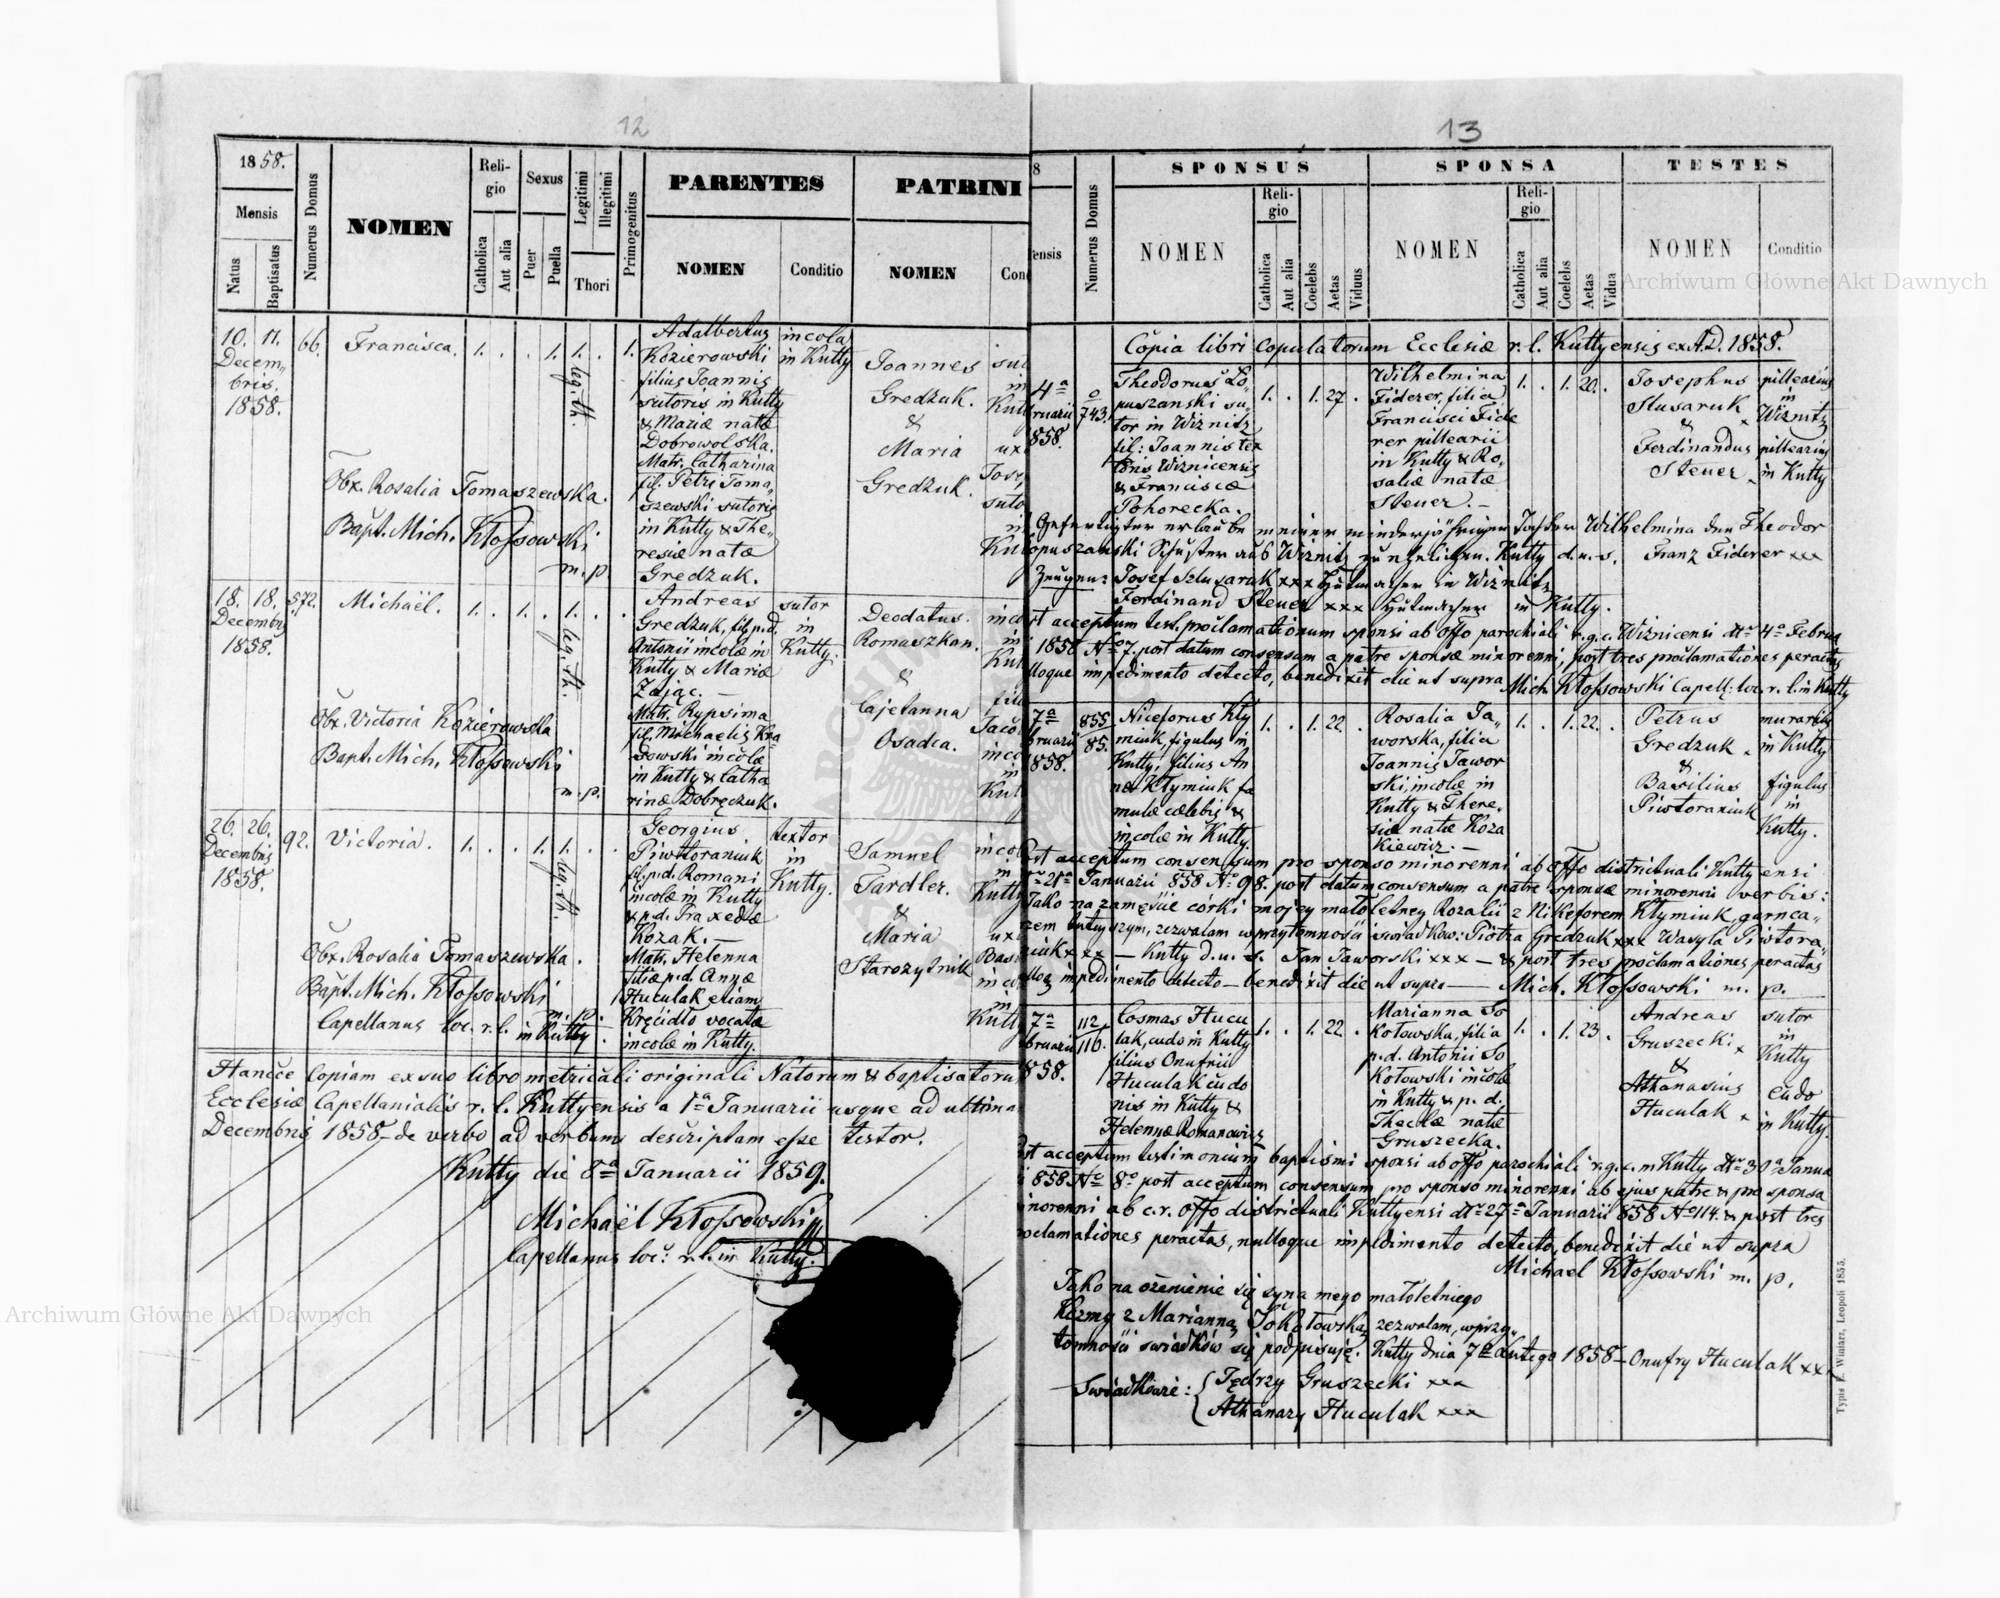 12
1858.
Mensis
Natus
Baptisatus
Numerus Domus
NOMEN
Religio
Catholica
Aut alia
Sexus
Puer
Puella
Legitimi
Illegitimi
Thori
Primogenitus
PARENTES
NOMEN
Conditio
PATRINI
NOMEN
10. 11.
Decem„
bris.
1858.
66.
Francisca.
1. . . 1. 1. . 1.
leg. th.
Adalbertus
Kozierowski
filius Joannis
sutoris in Kutty
& Mariæ natæ
Dobrowolska.
Matr. Catharina
fil. Petri Toma„
szewski sutoris
in Kutty & The„
resiæ natæ
Gredzuk.
incola
in Kutty
Joannes
Gredzuk.
&
Maria
Gredzuk.
Obx. Rosalia Tomaszewska.
Bapt. Mich. Kłossowski
m. p.
18. 18.
Decembris
1858.
572.
Michaël.
1. . 1. . 1. . .
leg. th.
Andreas
Gredzuk, fil. p. d.
Antonii incolæ in
Kutty & Mariæ
Zając. —
Matr. Rypsima
fil. Michaelis Kra„
sowski incolæ
in Kutty & Catha„
rinæ Dobręczuk.
sutor
in
Kutty.
Deodatus.
Romaszkan.
&
Cajetanna
Osadca.
Obx. Victoria Kozierowska
Bapt. Mich. Kłossowski
m. p.
26. 26.
Decembris
1858.
92.
Victoria.
1. . . 1. 1. . .
leg. th.
Georgius
Piwtoraniuk
fil. p. d. Romani
incolæ in Kutty
& p. d. Praxedæ
Kozak. —
Matr. Helenna
filia p. d. Annæ
Huculak etiam
Kręcidło vocatæ
incolæ in Kutty.
textor
in
Kutty.
Samuel
Tardler.
&
Maria
Starozytnik
Obx. Rosalia Tomaszewska.
Bapt. Mich. Kłossowski
m. p.
Capellanus loc. r. l. in Kutty.
Hancce Copiam ex suo libro metricali originali Natorum & baptisatoru
Ecclesiæ Capellanialis r. l. Kuttyensis a 1ª Januarii usque ad ultima
Decembris 1858 – de verbo ad verbum descriptam esse testor.
Kutty die 8ª Januarii 1859.
Michaël Kłossowski
Capellanus loc: r. l. in Kutty.
13
8
ensis
Numerus Domus
SPONSUS
NOMEN
Religio
Catholica
Aut alia
Coelebs
Aetas
Viduus
SPONSA
NOMEN
Religio
Catholica
Aut alia
Coelebs
Aetas
Vidua
TESTES
NOMEN
Conditio
Copia libri Copulatorum Ecclesiæ r. l. Kuttyensis ex A.D. 1858.
4ª
bruarii
858.
743.
Theodorus Ło„
puszanski su„
tor in Wiznitz
fil: Joannis tex
toris Wiznicensis
& Franciscæ
Pohorecka.
1. . 1. 27 .
Wilhelmina
Fiderer, filia
Francisci Fide
rer pillearii
in Kutty & Ro„
saliæ natæ
Steuer. —
1. . 1. 20 .
Josephus
Slusaruk
&
Ferdinandus
Steuer
pillearius
in
Wiznitz
pillearius
in Kutty
Gefertigter erlaube meiner minderjährigen Tochter Wilhelmina den Theodor
opuszanski Schuster aus Wiznitz zu ehelichen. Kutty d. u. s. Franz Fiderer xxx
Zeugen: Josef Szlusaruk xxx Hutmacher in Wiznitz
Ferdinand Steuer xxx Hutmacher in Kutty.
st acceptum test. proclamationum sponsi ab offo parochiali r. g. c. Wiznicensi dto 4ª Februa
1858 No 7. post datum consensum a patre sponsæ minorenni, post tres proclamationes peractas
lloque impedimento detecto, benedixit die ut supra Mich. Kłossowski Capell: loc. r. l. in Kutty
7ª
bruarii
1858.
855
85.
Niceforus Kły
miuk, figulus in
Kutty, filius An
næ Kłymiuk fa
mulæ cælebis &
incolæ in Kutty.
1. . 1. 22 .
Rosalia Ja„
worska, filia
Joannis Jawor
ski, incolæ in
Kutty & There„
siæ natæ Koza
kiewicz. —
1. . 1. 22. .
Petrus
Gredzuk
&
Basilius
Piwtoraniuk
murarius
in Kutty
figulus
in
Kutty.
st acceptum consensum pro sponso minorenni ab offo districtuali Kuttyensi
to 21ª Januarii 858 No 98. post datum consensum a patre sponsæ minorenni verbis:
Jako na zamęście córki mojey małoletney Rozalii z Nikeforem Kłymiuk, garnca„
rzem tutejszym, zezwalam w przytomności świadków: Piotra Gredzuk xxx Wasyla Piwtora„
niuk xxx — Kutty d. u. s. Jan Jaworski xxx — & post tres proclamationes peractas
lloq impedimento detecto – benedixit die ut supra — Mich. Kłossowski m. p.
7ª
bruarii
858.
112
116.
Cosmas Hucu
lak, cudo in Kutty
filius Onufrii
Huculak cudo
nis in Kutty &
Helennæ Romanowicz
1. . 1. 22 .
Marianna So
kołowska, filia
p. d. Antonii So
kołowski incolæ
in Kutty & p. d.
Theclæ natæ
Gruszecka.
1. . 1. 23 .
Andreas
Gruszecki
&
Athanasius
Huculak
sutor
in
Kutty
cudo
in Kutty.
st acceptum testimonium baptismi sponsi ab offo parochiali r. g. c. in Kutty dto 30ª Janua
858 No 8o post acceptum consensum pro sponso minorenni ab ejus patre & pro sponsa
inorenni ab c. r. offo districtuali Kuttyensi dto 27ª Januarii 858 No 114. & post tres
oclamationes peractas, nulloque impedimento detecto, benedixit die ut supra
Michael Kłossowski m. p.
Jako na ożenienie się syna mego małoletniego
Kozmy z Marianną Sokołowską zezwalam, w przy„
tomności świadków się podpisuję. Kutty dnia 7go Lutego 1858 – Onufry Huculak xxx
Świadkowie: Jędrzy Gruszecki xxx
Athanazy Huculak xxx
Typis E. Winiarz, Leopoli 1855.
Archiwum Główne Akt Dawnych
Archiwum Główne Akt Dawnych